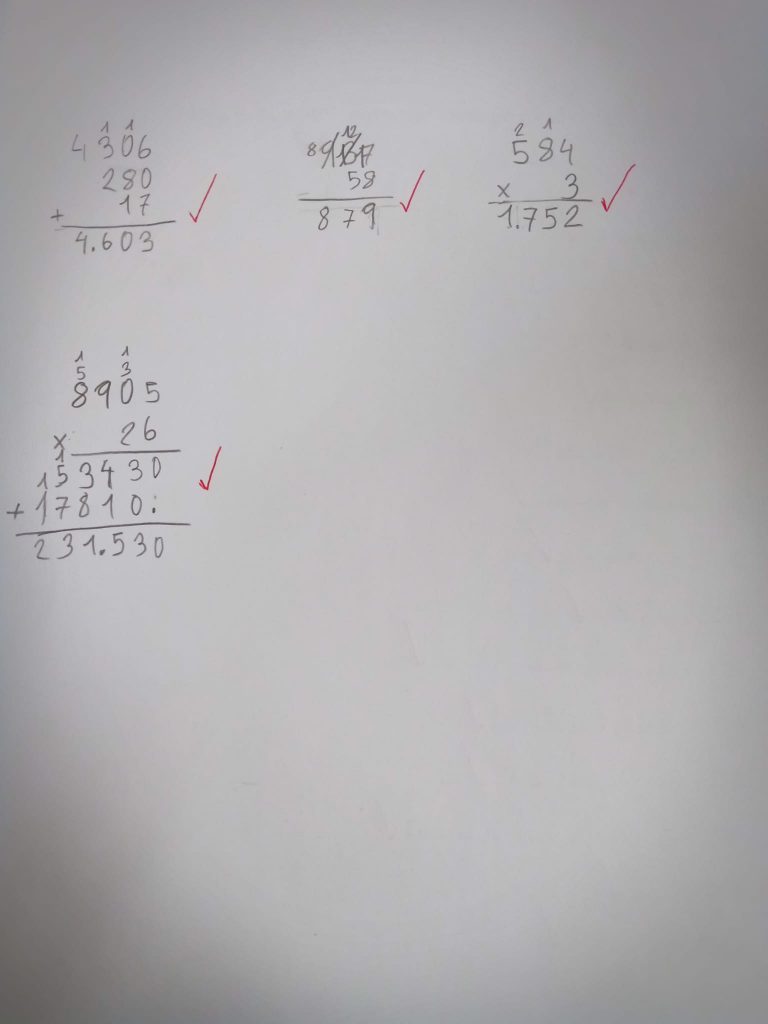 1 1
4306
280
+ 17
4.603
12
8 9 13 17
58
879
2 1
584
x 3
1.752
1 1
5 3
8905
x 26
1
1 53430
+ 17810:
231.530